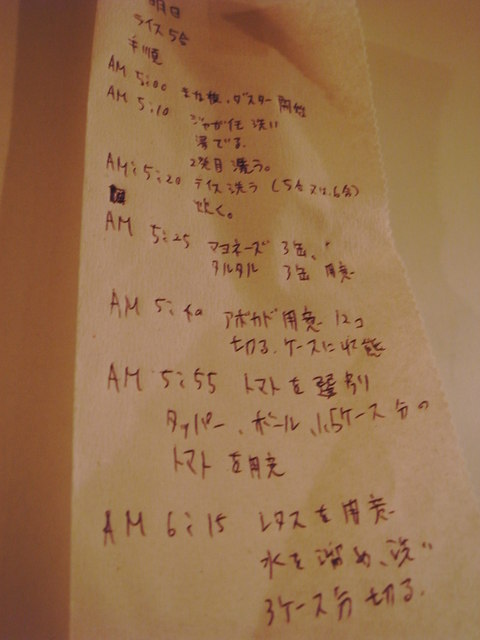 明日
ライス5合
手順
AM 5:00 まな板、ダスター 開始
AM 5:10 ジャガ任 洗い
湯でる。
2発目 洗う。
AM:5:20 ライス洗う (5合又は6合)
炊く。
AM 5:25 マヨネーズ 3缶、
タルタル 3缶 用意
AM 5:40 アボカド用意 12コ
切る、ケースに収態
AM 5:55 トマトを選別
タッパー、ボール、1.5ケース分の
トマトを用意
AM 6:15 レタスを用意
水を溜め、洗い
3ケース分 切る。